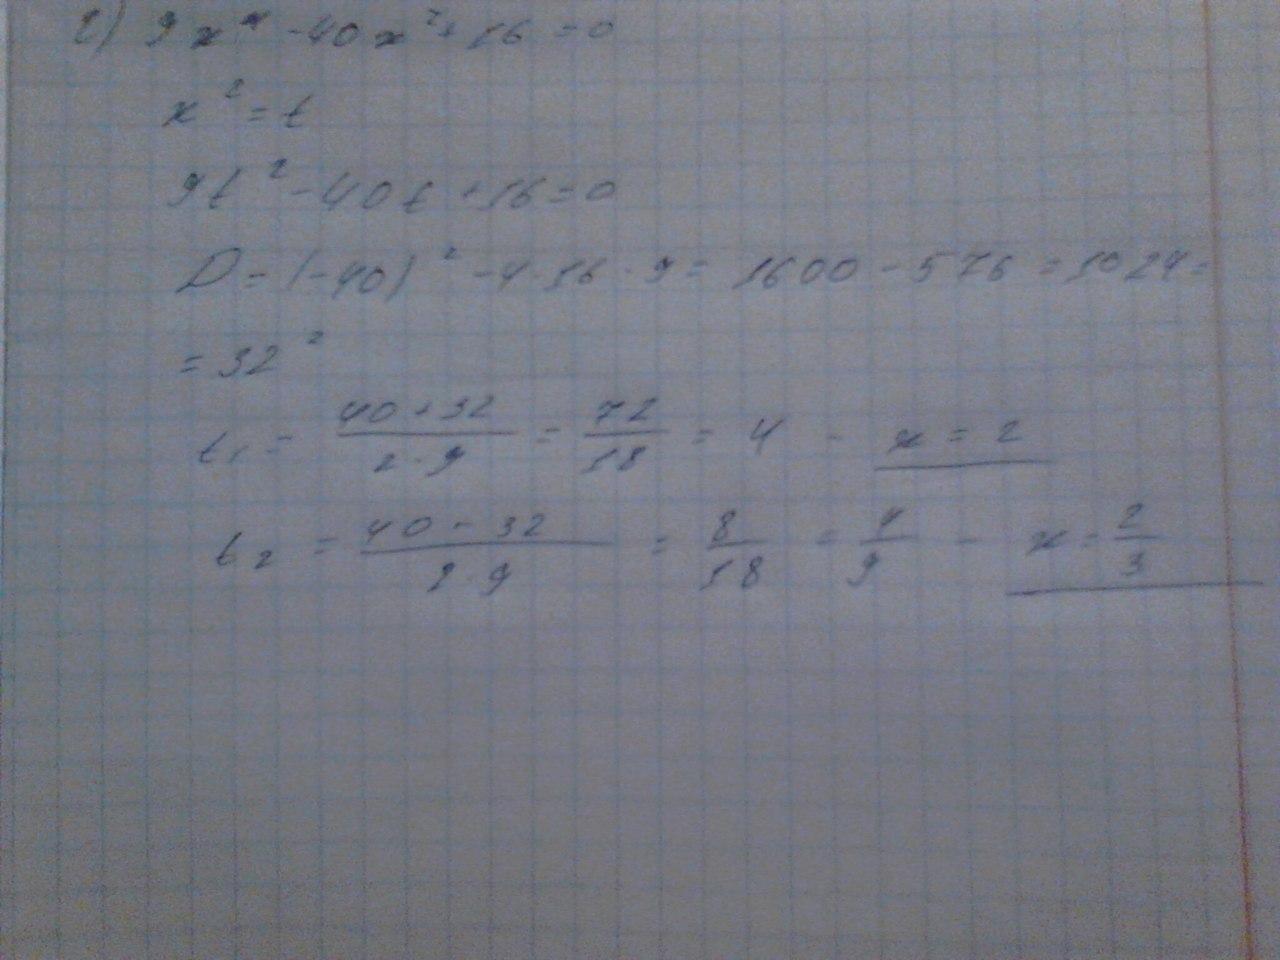 г) 9x⁴ - 40x² + 16 = 0
x² = t
9t² - 40t + 16 = 0
D = (-40)² - 4·16·9 = 1600 - 576 = 1024 =
= 32²
t₁ = (40 + 32)/(2·9) = 72/18 = 4 - x = 2
t₂ = (40 - 32)/(2·9) = 8/18 = 4/9 - x = 2/3